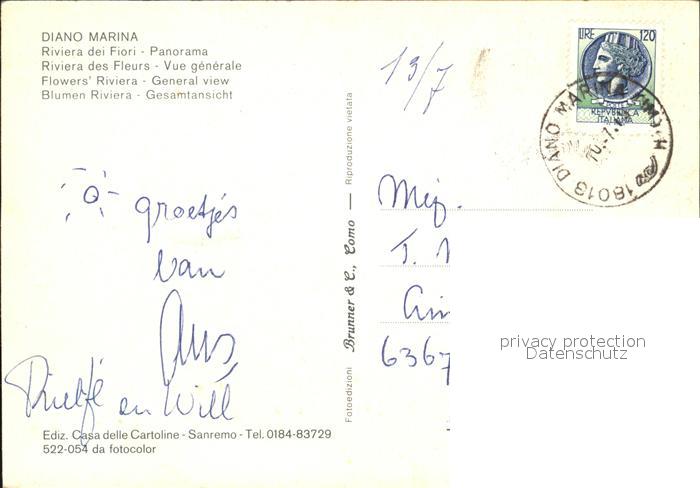 DIANO MARINA
Riviera dei Fiori - Panorama
Riviera des Fleurs - Vue générale
Flowers' Riviera - General view
Blumen Riviera - Gesamtansicht
groetjes
van
Ans,
en Will
Ediz. Casa delle Cartoline - Sanremo - Tel. 0184-83729
522-054 da fotocolor
Fotoedizioni Brunner & C., Como — Riproduzione vietata
13/7
LIRE 120
REPVBBLICA
ITALIANA
18013 DIANO MARINA
Mej.
T.
6367
privacy protection
Datenschutz